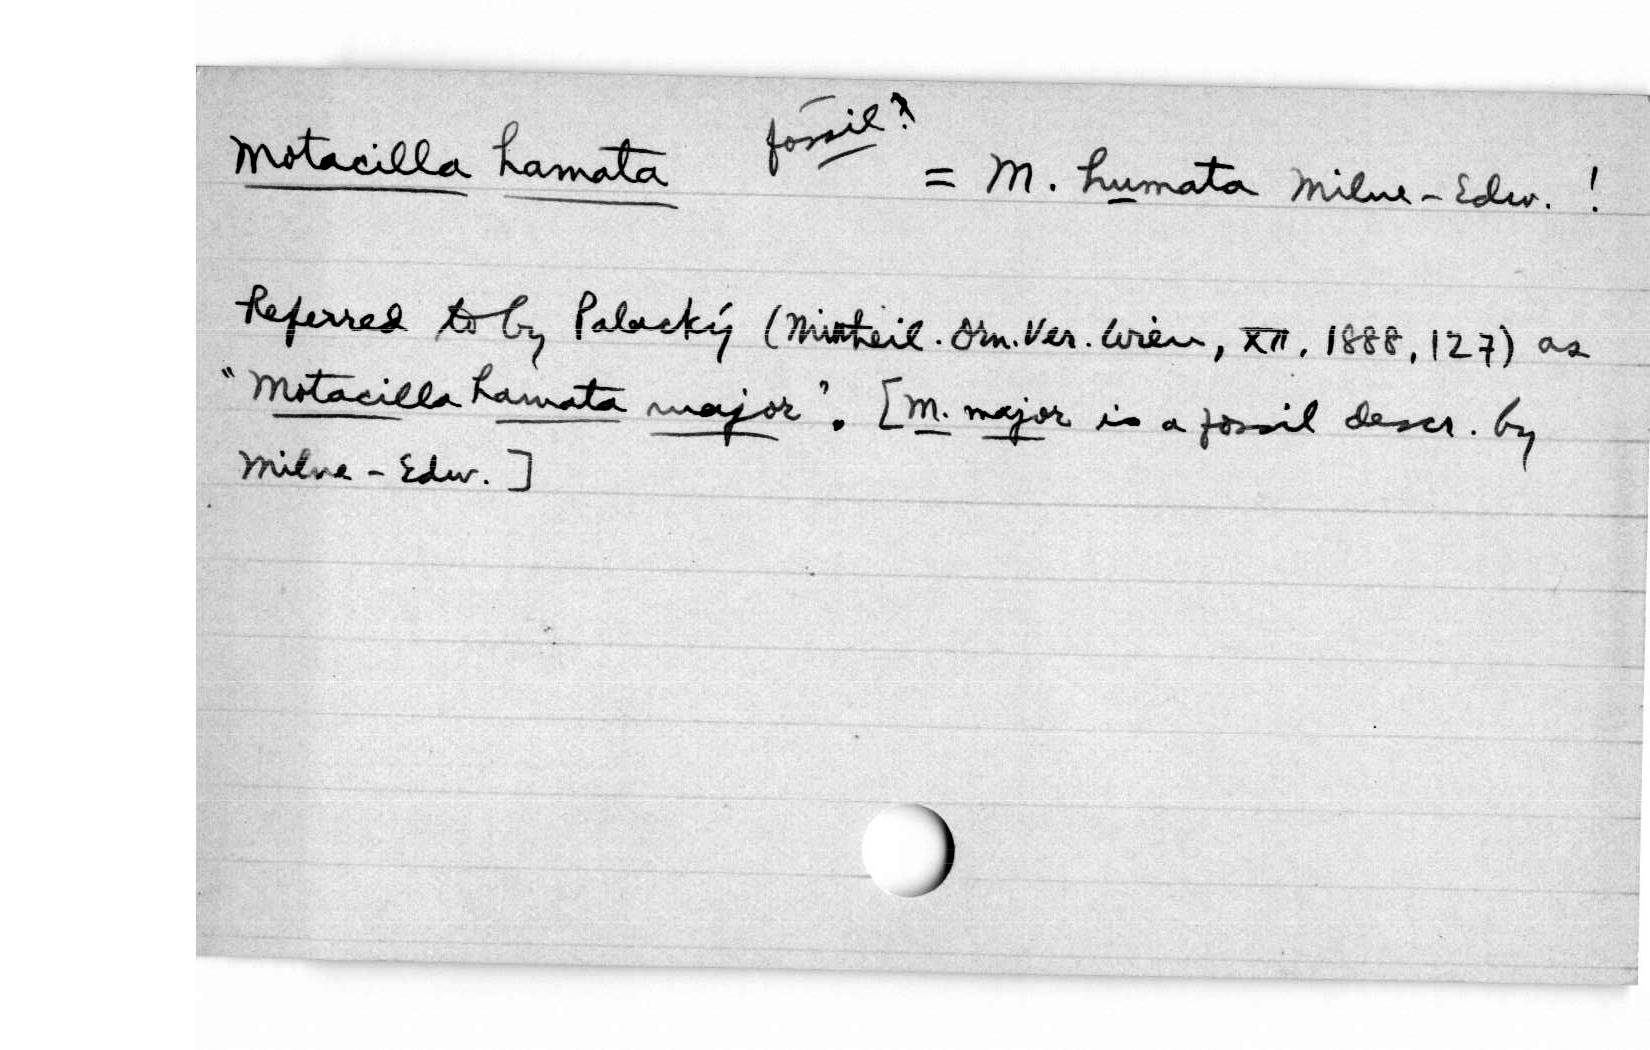 Motacilla hamata fossil? = M. humata Milne-Edw. !
Referred to by Palacký (Mittheil. Orn. Ver. Wien, XII, 1888, 127) as
"Motacilla hamata major". [M. major is a fossil descr. by
Milne-Edw.]